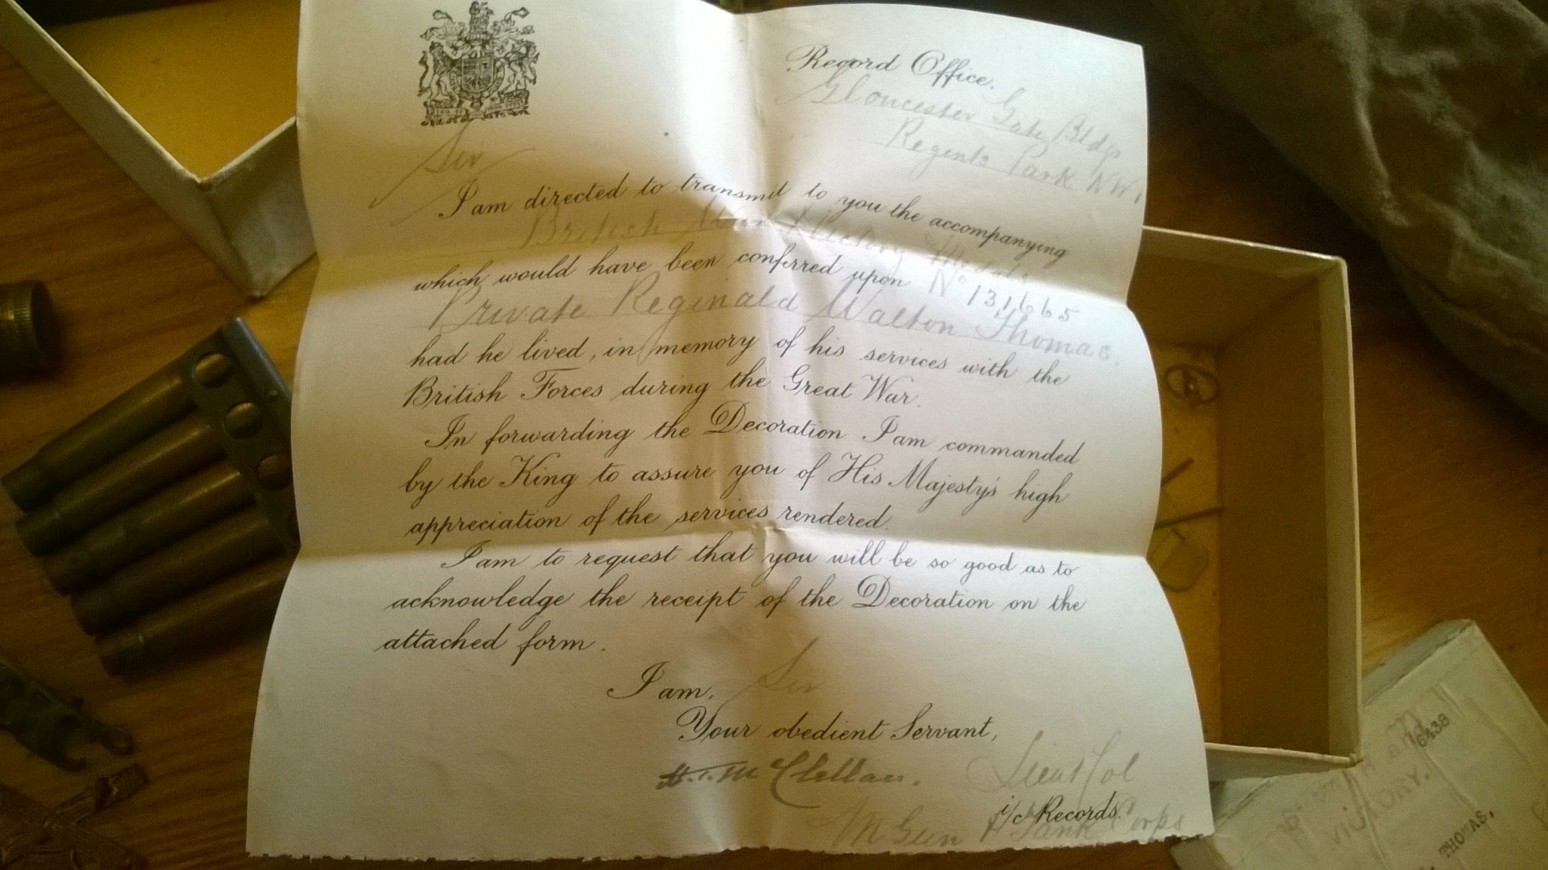 Record Office.
Gloucester Gate Bldgs
Regents Park NW1
Sir
I am directed to transmit to you the accompanying
British War & Victory Medals
which would have been conferred upon No 131665
Private Reginald Walton Thomas.
had he lived, in memory of his services with the
British Forces during the Great War.
In forwarding the Decoration I am commanded
by the King to assure you of His Majesty's high
appreciation of the services rendered.
I am to request that you will be so good as to
acknowledge the receipt of the Decoration on the
attached form.
I am, Sir
Your obedient Servant,
McClellan. Lieut Col
i/c Records.
M Gun & Tank Corps
AND
VICTORY.
6438
THOMAS,